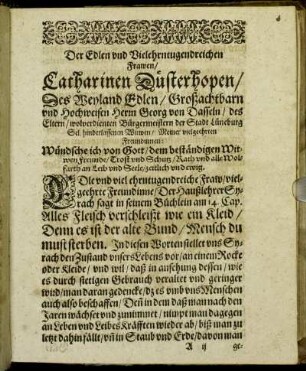 Der Edlen vnd Vielehrntugendreichen
Frawen/
Catharinen Düsterhopen/
Des Weyland Edlen/ Großachtbarn
vnd Hochweisen Herrn Georg von Dasseln/ des
Eltern/ wolverdienten Bürgermeisters der Stadt Lüneburg
Sel. hinderlassenen Witwen/ Meiner vielgeehrten
Freundinnen/
Wündsche ich von Gott/ dem beständigen Wit-
wen Freunde/ Trost vnd Schutz/ Rath vnd alle Wol-
farth an Leib vnd Seele/ zeitlich vnd ewig.
EDle vnd viel ehrntugendreiche Fraw/ viel-
geehrte Freundinne/ Der Haußlehrer Sy-
rach sagt in seinem Büchlein am 14. Cap.
Alles Fleisch verschleißt wie ein Kleid/
Denn es ist der alte Bund/ Mensch du
must sterben. In diesen Worten stellet vns Sy-
rach den Zustand vnsers Lebens vor/ an einem Rocke
oder Kleide/ vnd wil/ daß in ansehung dessen/ wie
es durch stetigen Gebrauch veraltet vnd geringer
wird/ man daran gedencke/ dz es vmb vns Menschen
auch also beschaffen/ Deñ in dem daß man nach den
Jaren wächset vnd zunimmet/ nimpt man dagegen
an Leben vnd Leibes Kräfften wieder ab/ biß man zu
letzt dahin fällt/ vñ in Staub vnd Erde/ davon man
A ij
ge-